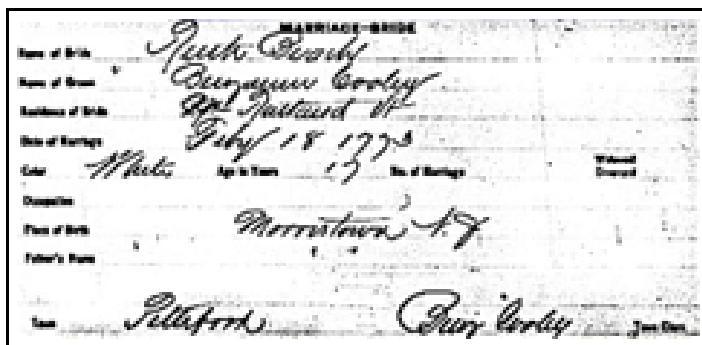 MARRIAGE—BRIDE
Name of Bride Ruth Beverly
Name of Groom Benjamin Cooley
Residence of Bride Rutland Vt
Date of Marriage Feby 18 1773
Color White Age in Years 17 No. of Marriage Widowed
Divorced
Occupation
Place of Birth Morristown N.J.
Father's Name
Town Pittsford Benj Cooley Town Clerk